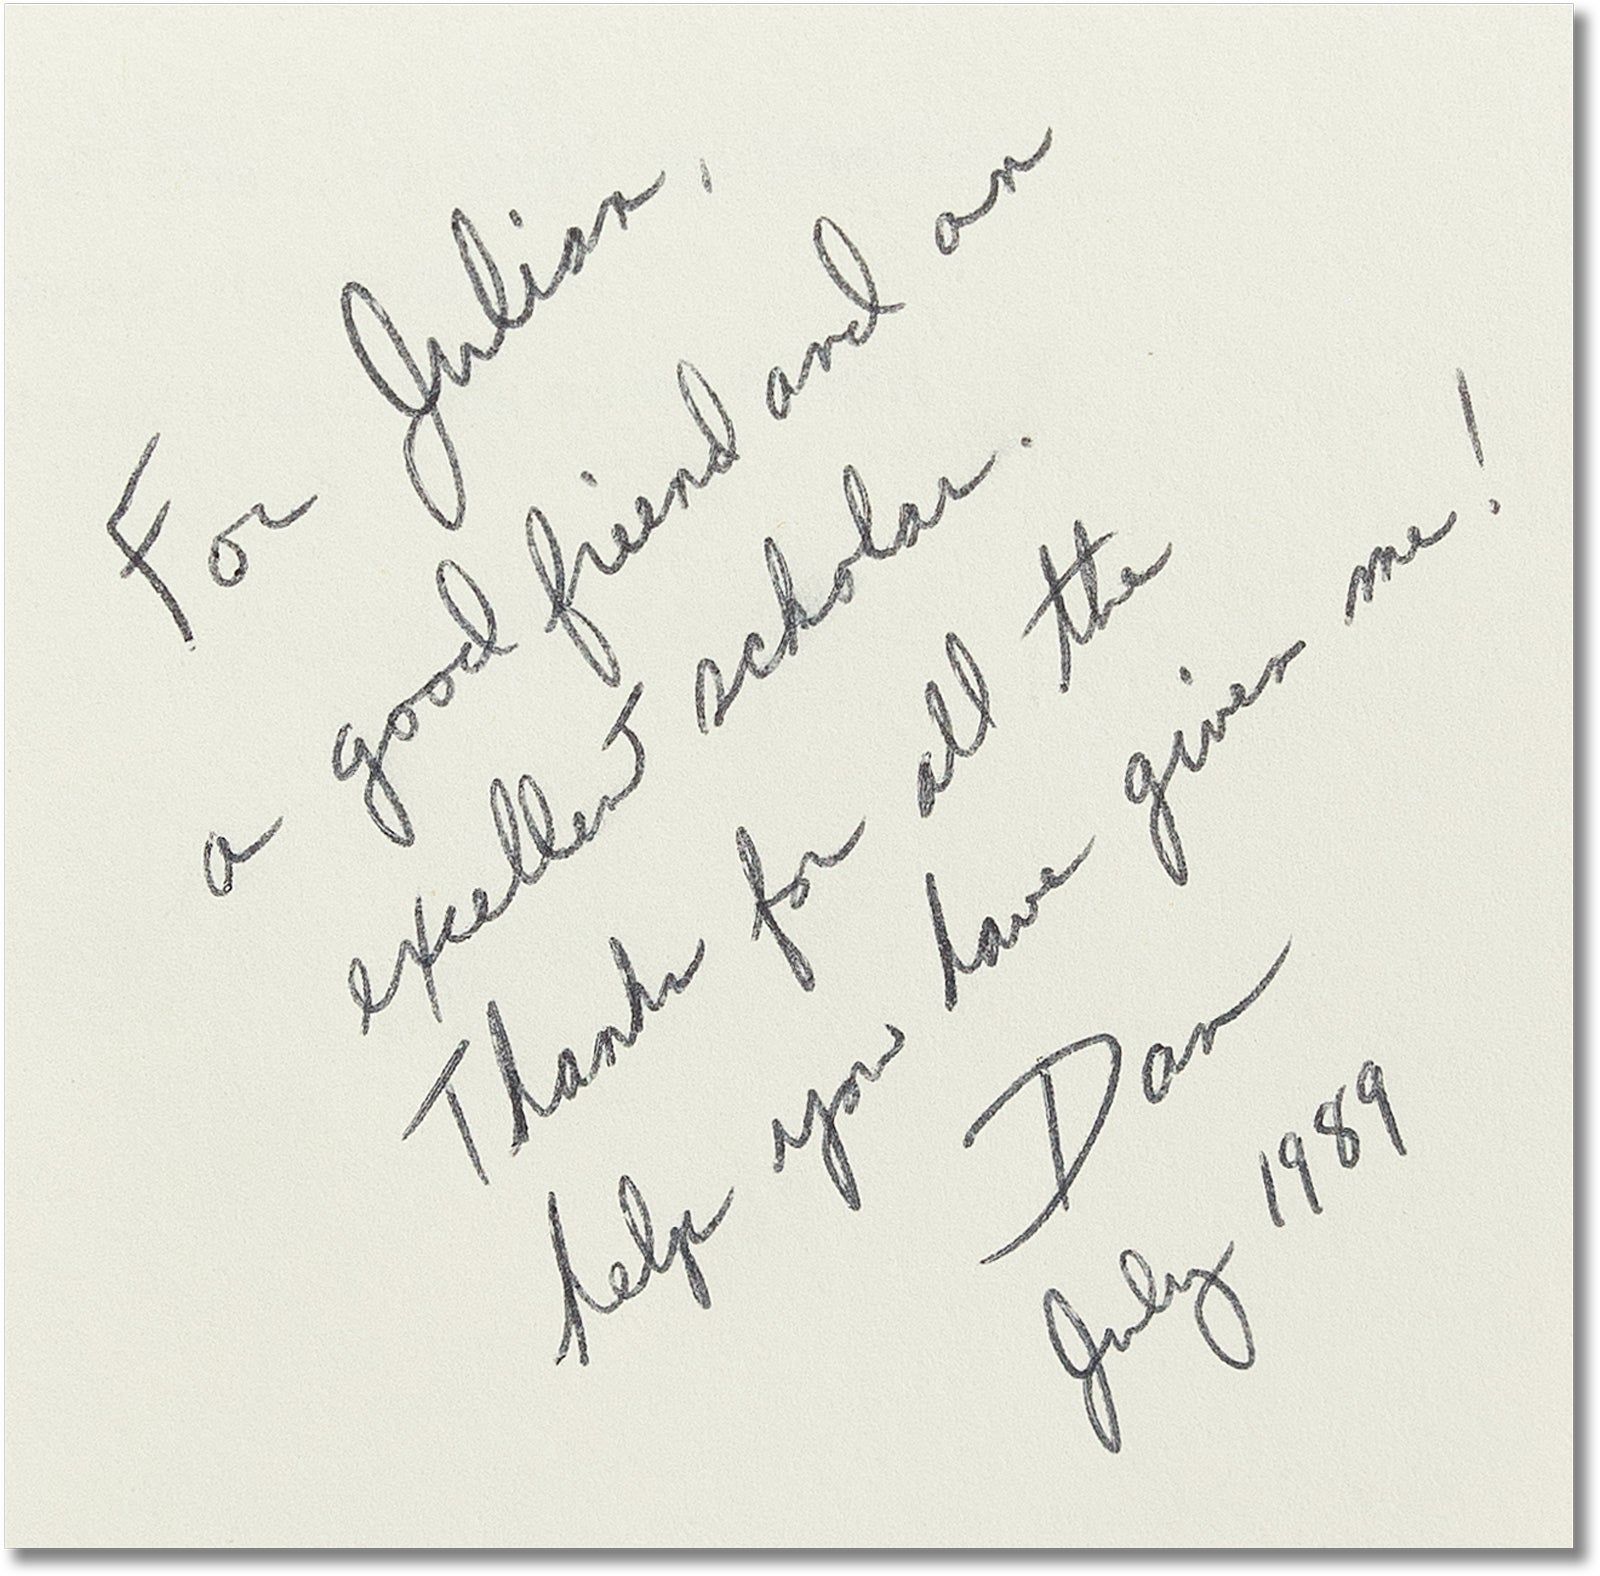 For Julian,
a good friend and an
excellent scholar.
Thanks for all the
help you have given me!
Dan
July 1989